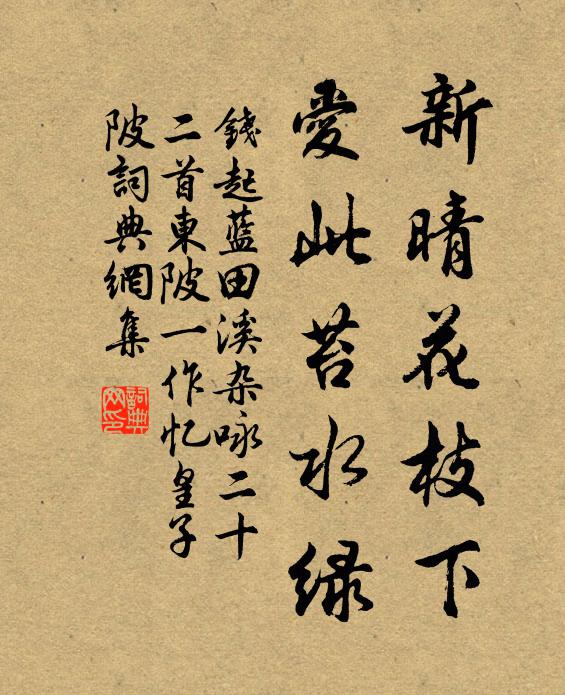 新晴花枝下
愛此苔水绿
錢起蓝田溪杂咏二十
二首東陂一作忆皇子
陂詞典網集
詞典网印